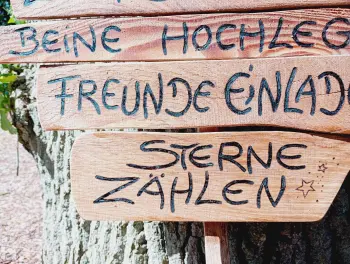 BEINE HOCHLEG
FREUNDE EINLAD
STERNE
ZÄHLEN